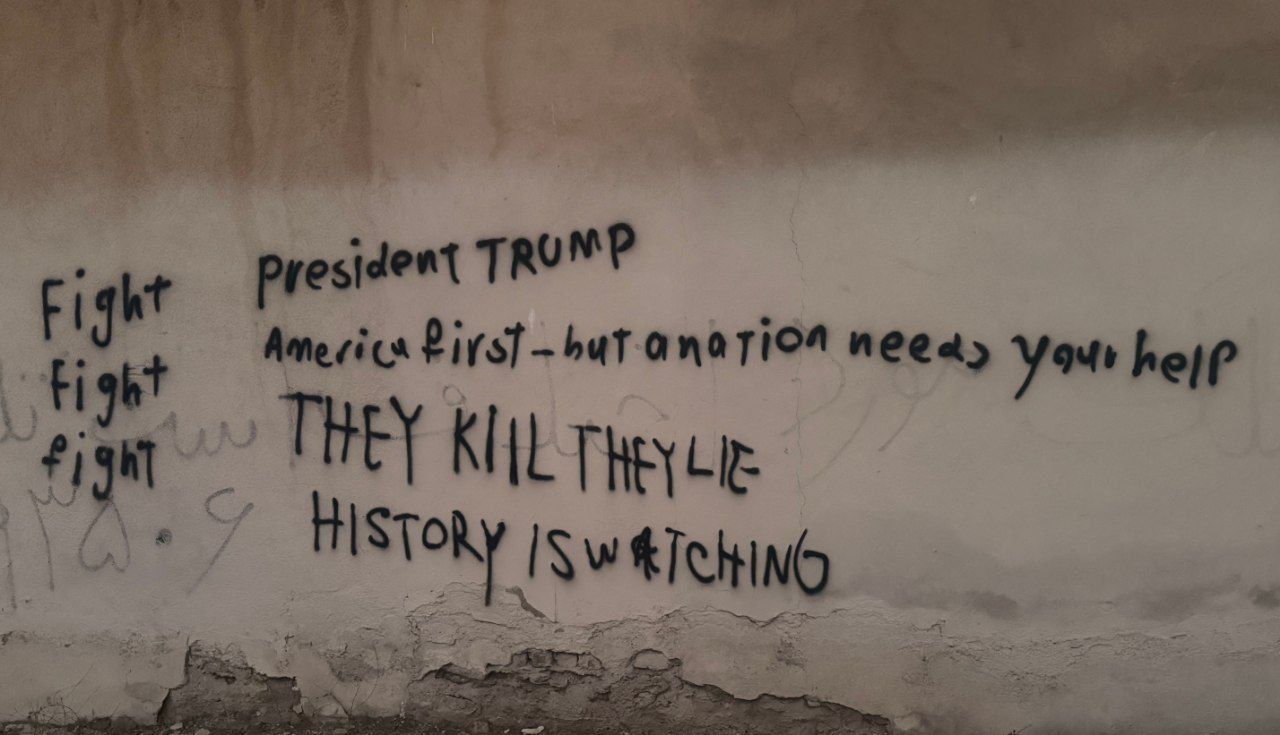 Fight
Fight
fight
President TRUMP
America first - but a nation needs your help
THEY KILL THEY LIE
HISTORY IS WATCHING